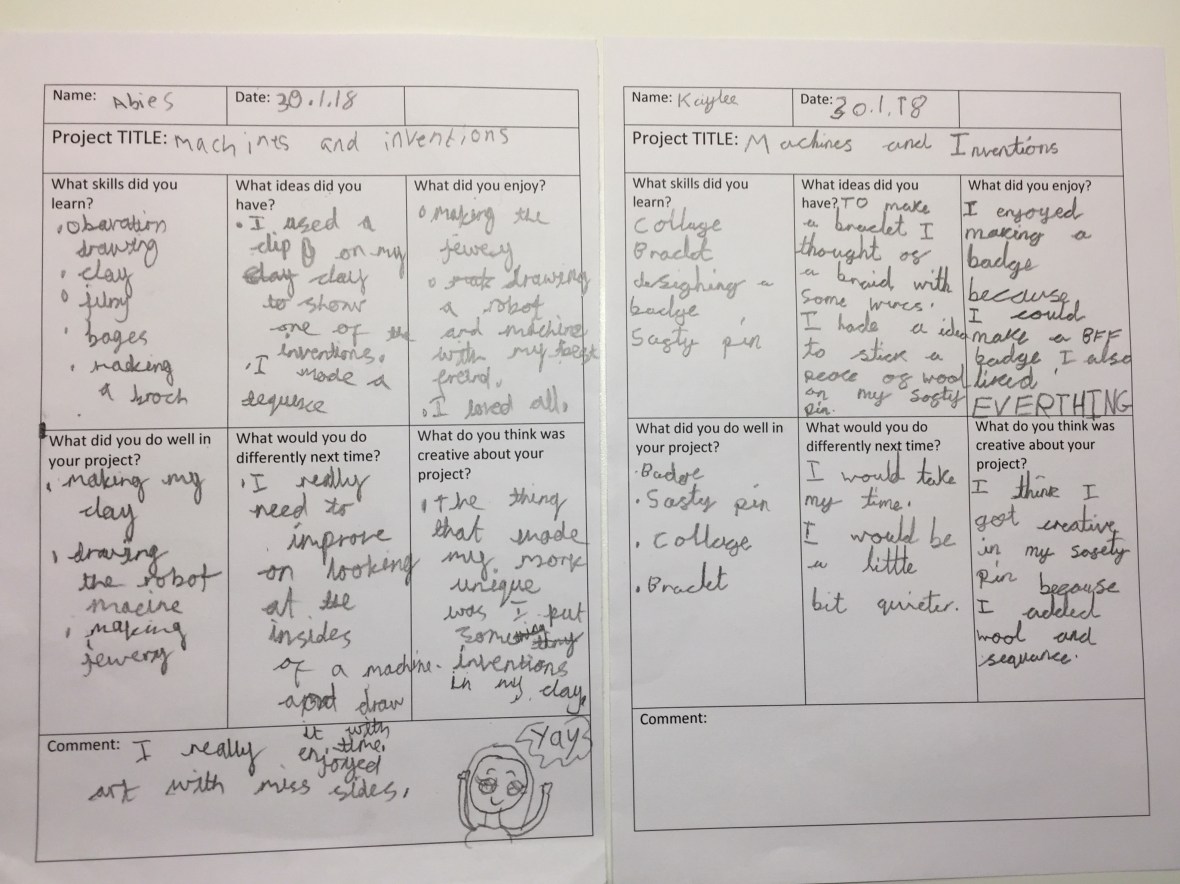 Name: Abies
Date: 30.1.18
Project TITLE: machines and inventions
What skills did you
learn?
. obaration
drawing
. clay
filmy
. bages
. making
a broch
What ideas did you
have?
. I used a
clip on my
clay
to show
one of the
inventions.
. I made a
sequisce
What did you enjoy?
making the
jewery
drawing
a robot
and machine
with my best
freind.
. I loved all.
What did you do well in
your project?
. making my
clay
. drawing
the robot
macine
. making
jewery
What would you do
differently next time?
. I really
need to
improve
on looking
at the
insides
of a machine.
and draw
it with
time.
What do you think was
creative about your
project?
. the thing
that made
my work
uneque
was I put
some
inventions
in my clay.
Comment: I really enjoyed
art with miss sides.
Yay
Name: Kaylee
Date: 30.1.18
Project TITLE: Machines and Inventions
What skills did you
learn?
Collage
Braclet
desighing a
badge
Safty pin
What ideas did you
have? TO make
a braclet I
thought of
a braid with
some wires.
I hade a idea
to stick a
peace of wool
on my safty
pin.
What did you enjoy?
I enjoyed
making a
badge
because
I could
make a BFF
badge I also
liked
EVERTHING
What did you do well in
your project?
. Badge
. Safty pin
. Collage
. Braclet
What would you do
differently next time?
I would take
my time.
I would be
a little
bit quieter.
What do you think was
creative about your
project?
I think I
got creative
in my safety
pin because
I added
wool and
sequance.
Comment: